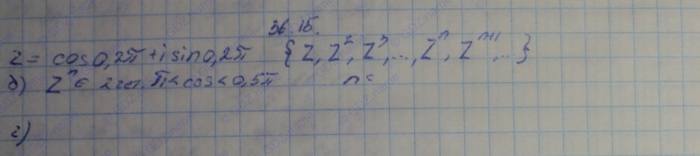 36.15.
z = cos 0,2π + i sin 0,2π {z, z², z³, ..., zⁿ, zⁿ⁺¹, ...}
б) zⁿ ∈ 2 чет. π < cos < 0,5π n =
г)